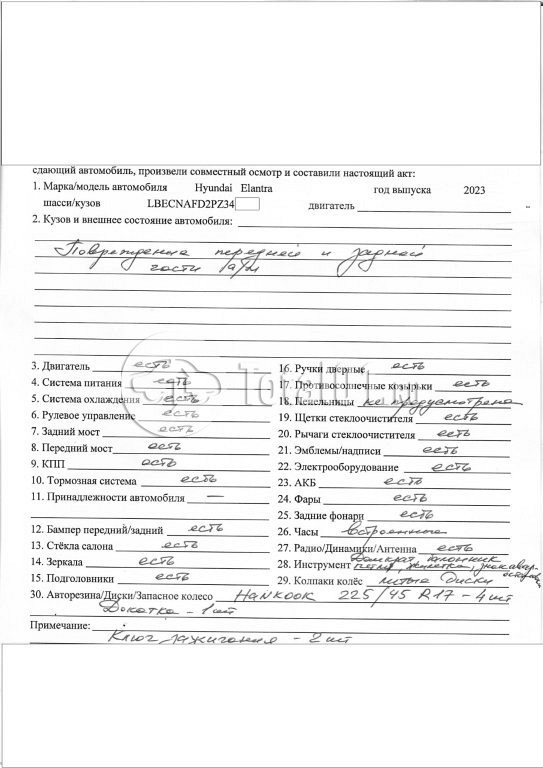 сдающий автомобиль, произвели совместный осмотр и составили настоящий акт:
1. Марка/модель автомобиля Hyundai Elantra год выпуска 2023
шасси/кузов LBECNAFD2PZ34 двигатель
2. Кузов и внешнее состояние автомобиля:
Повреждения передней и задней
части а/м
3. Двигатель есть 16. Ручки дверные есть
4. Система питания есть 17. Противосолнечные козырьки есть
5. Система охлаждения есть 18. Пепельницы не предусмотрена
6. Рулевое управление есть 19. Щетки стеклоочистителя есть
7. Задний мост есть 20. Рычаги стеклоочистителя есть
8. Передний мост есть 21. Эмблемы/надписи есть
9. КПП есть 22. Электрооборудование есть
10. Тормозная система есть 23. АКБ есть
11. Принадлежности автомобиля — 24. Фары есть
25. Задние фонари есть
12. Бампер передний/задний есть 26. Часы встроенные
13. Стёкла салона есть 27. Радио/Динамики/Антенна есть
14. Зеркала есть 28. Инструмент Домкрат, петля, жилетка, знак
15. Подголовники есть 29. Колпаки колёс литые диски
30. Авторезина/Диски/Запасное колесо Hankook 225/45 R17 - 4 шт
Докатка - 1 шт
Примечание:
Ключ зажигания - 2 шт